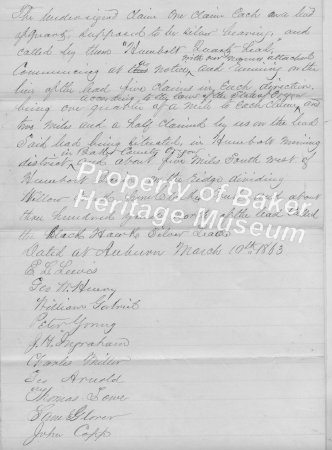 The undersigned claim one claim each on a lead
of quartz supposed to be silver bearing, and
called by them "Humbolt" Quartz Lead,
with our names attached
Commencing at this notice, and running on the
line of the lead five claims in each direction,
according to the laws of the State of Oregon
being one quarter of a mile to each claim, or
two miles and a half claimed by us on the lead
Said lead being situated in Humbolt mining
in Baker County Oregon
district, and about five miles South west of
Humbolt on the ridge dividing
Willow and about
three hundred of the lead called
the Black Hawk Silver Lead
Dated at Auburn March 10th 1863
E. L. Lewis
Geo W. Henry
William
Peter Young
J. H. Ingraham
Charles Miller
Geo Arnold
Thomas Lowe
Sam Glover
John Capp
Property of Baker
Heritage Museum